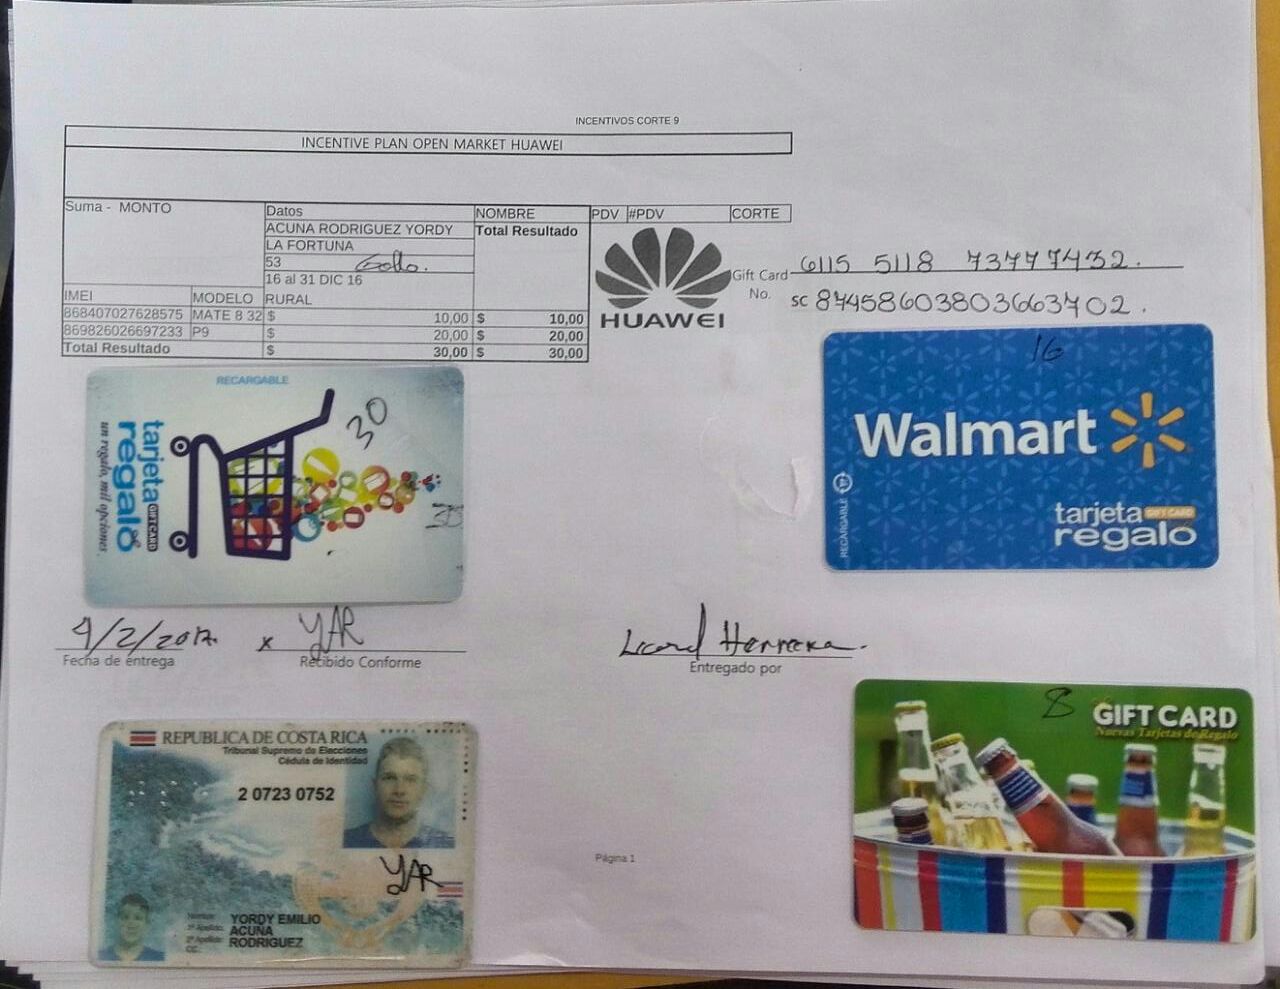 INCENTIVOS CORTE 9
INCENTIVE PLAN OPEN MARKET HUAWEI
Suma - MONTO Datos NOMBRE PDV #PDV CORTE
ACUNA RODRIGUEZ YORDY Total Resultado
LA FORTUNA
53 Gollo.
16 al 31 DIC 16
IMEI MODELO RURAL
868407027628575 MATE 8 32 $ 10,00 $ 10,00
869826026697233 P9 $ 20,00 $ 20,00
Total Resultado $ 30,00 $ 30,00
HUAWEI
Gift Card No. 6115 5118 73777432.
SC 87458603803663702.
RECARGABLE
tarjeta GIFT CARD
regalo
un regalo, mil opciones.
30
16
Walmart
RECARGABLE
tarjeta GIFT CARD
regalo
9/2/2017. x YAR
Fecha de entrega Recibido Conforme
Herrera.
Entregado por
REPUBLICA DE COSTA RICA
Tribunal Supremo de Elecciones
Cédula de Identidad
2 0723 0752
YAR
Nombre: YORDY EMILIO
1º Apellido: ACUÑA
2º Apellido: RODRIGUEZ
CC.:
Página 1
8
GIFT CARD
Nuevas Tarjetas de Regalo